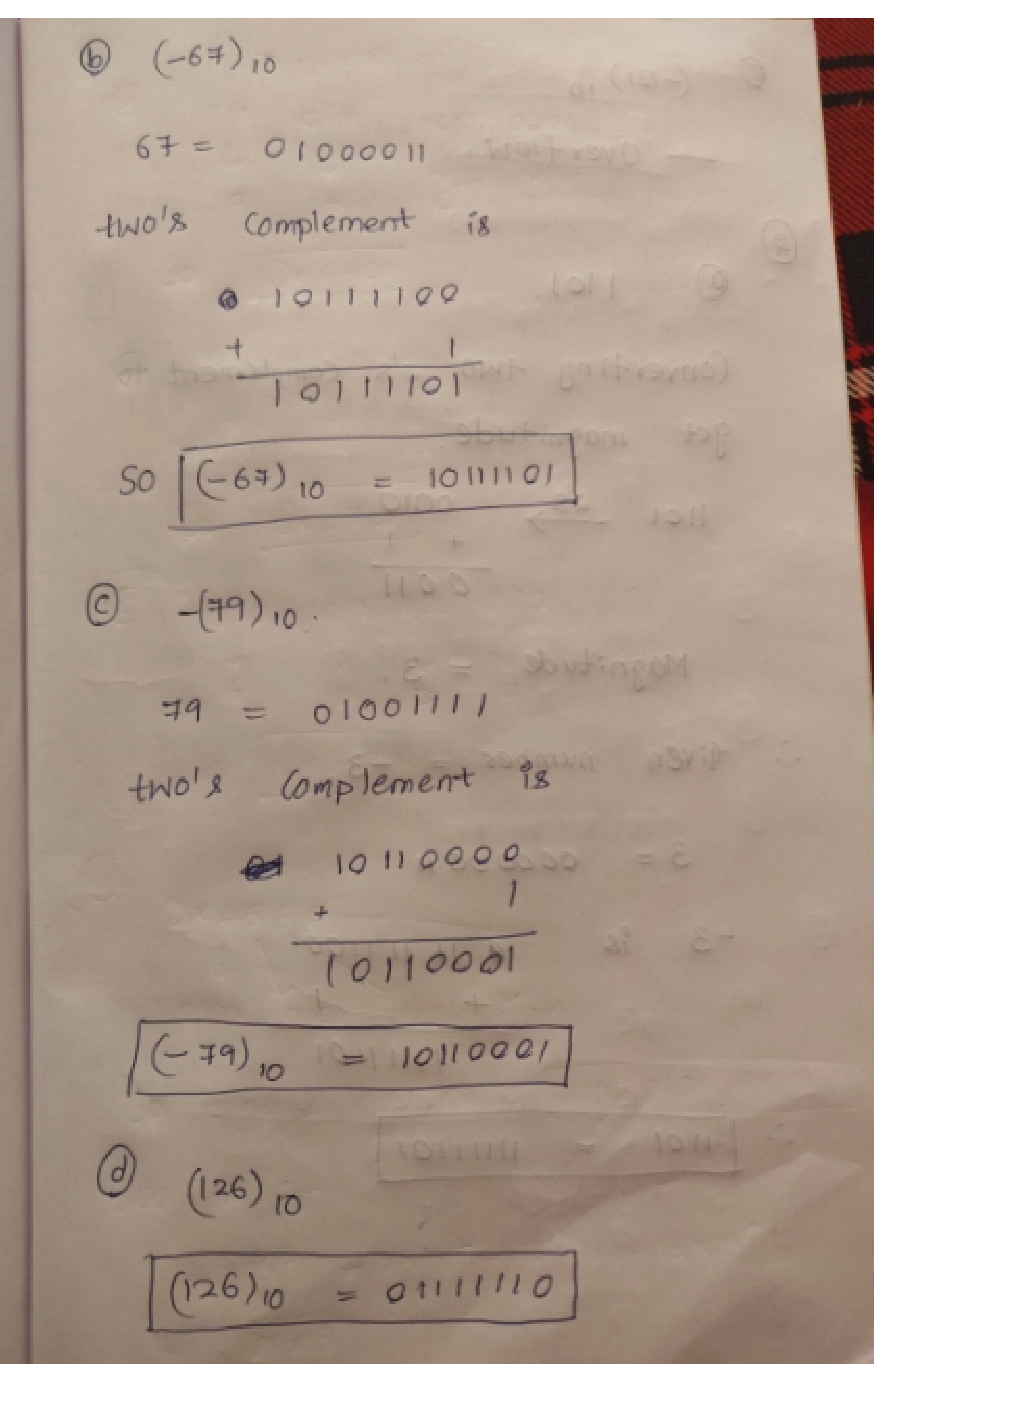 ⓑ (-67)10
67 = 01000011
two's complement is
10111100
+ 1
10111101
So (-67)10 = 10111101
ⓒ -(79)10.
79 = 01001111
two's complement is
10110000
+ 1
10110001
(-79)10 = 10110001
ⓓ (126)10
(126)10 = 01111110